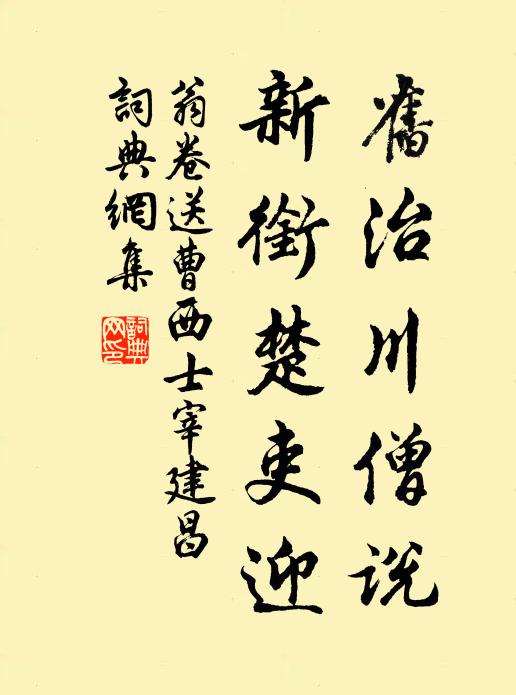 舊治川僧說
新銜楚吏迎
翁卷送曹西士宰建昌
詞典網集
詞典网印